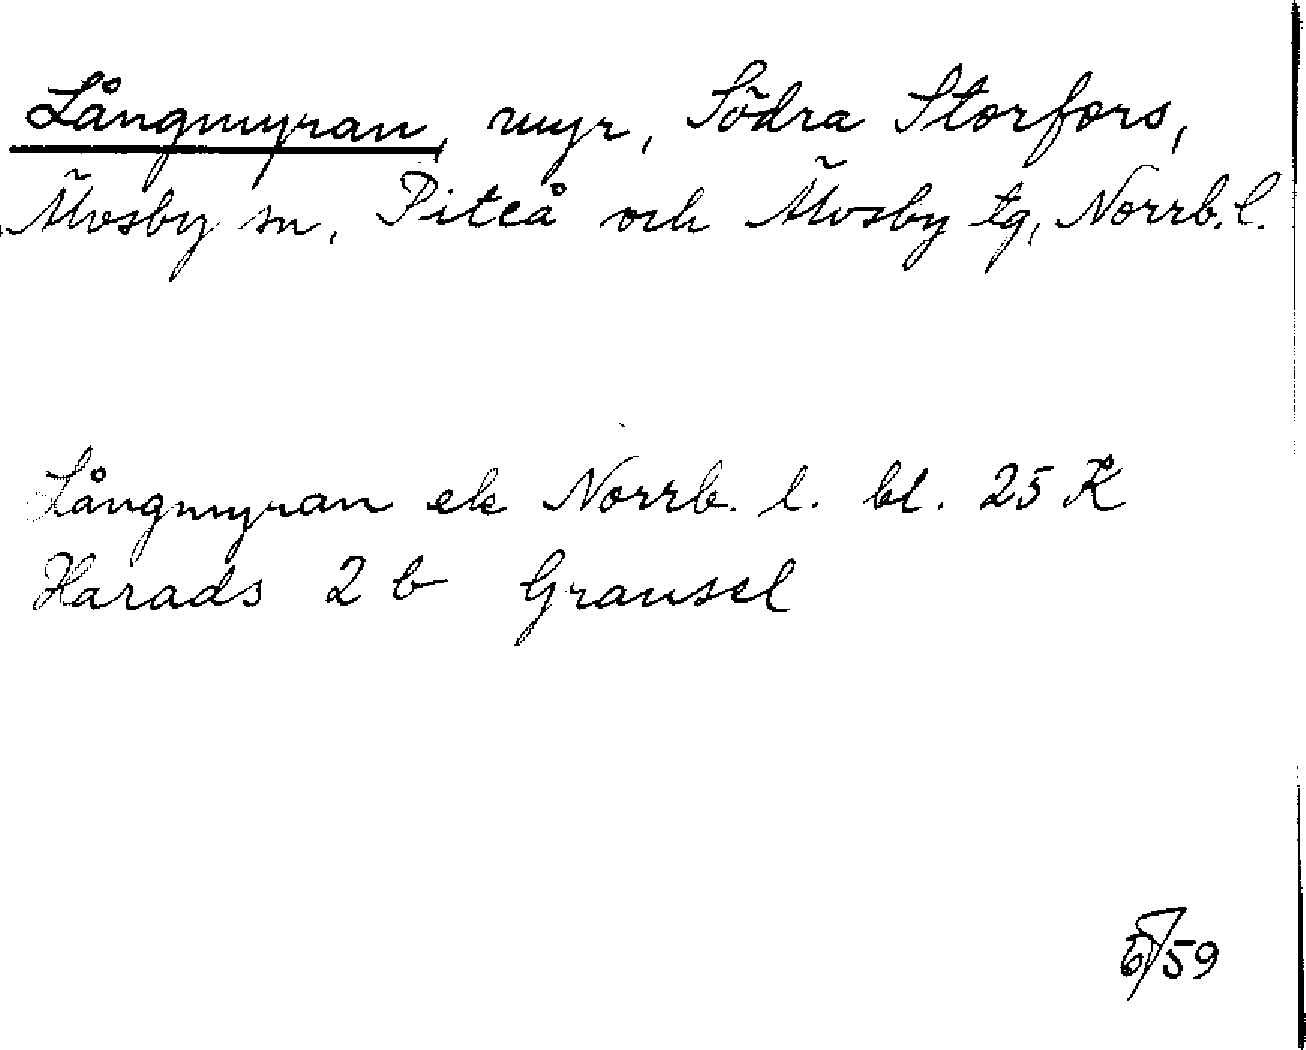 Långmyran, myr, Södra Storfors,
Älvsby sn, Piteå och Älvsby tg, Norrb. l.
Långmyran ek Norrb. l. bl. 25 K
Harads 2 b Gransel
59